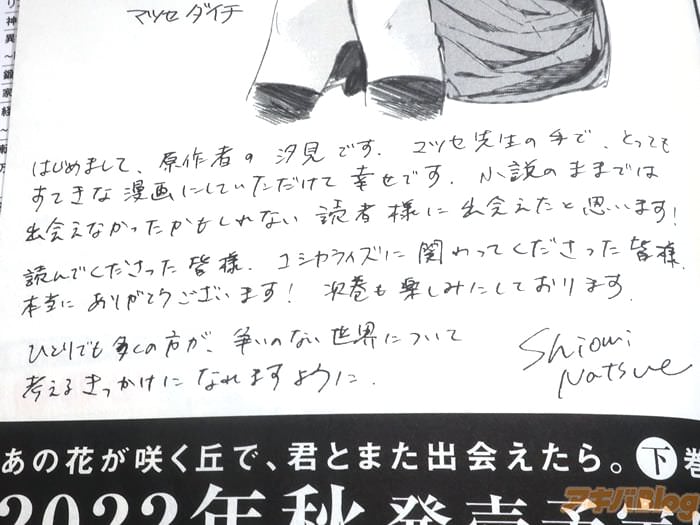 マツセダイチ
り神異〜鍛家経〜転
はじめまして、原作者の汐見です。マツセ先生の手で、とっても
すてきな漫画にしていただけて幸せです。小説のままでは
出会えなかったかもしれない読者様に出会えたと思います!
読んでくださった皆様、コミカライズに関わってくださった皆様、
本当にありがとうございます! 次巻も楽しみにしております。
ひとりでも多くの方が、争いのない世界について
考えるきっかけになれますように。
Shiomi
Natsue
あの花が咲く丘で、君とまた出会えたら。下巻
2022年秋発売予定
アキバBlog